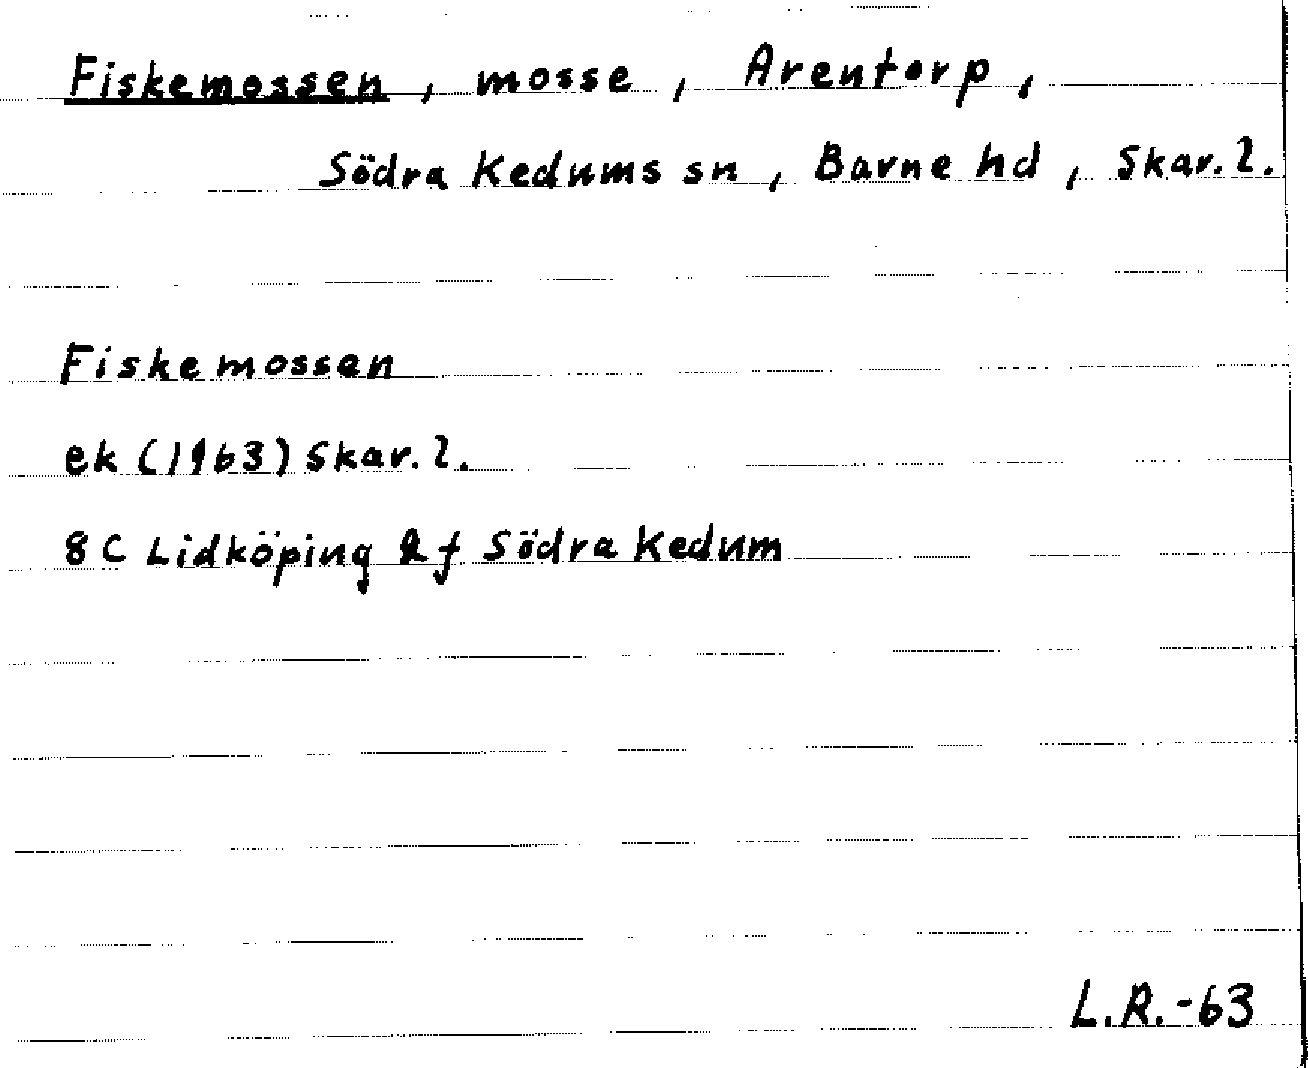 Fiskemossen, mosse, Arentorp,
Södra Kedums sn, Barne hd, Skar. l.
Fiskemossen
ek (1963) Skar. l.
8 C Lidköping & f Södra Kedum
L.R.-63